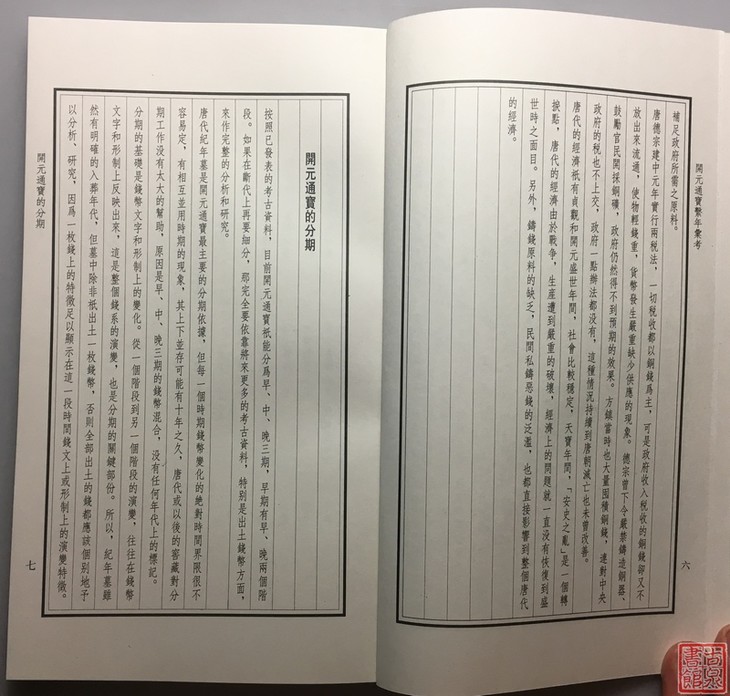 開元通寶繫年彙考
補足政府所需之原料。
唐德宗建中元年實行兩稅法，一切稅收都以銅錢爲主，可是政府收入稅收的銅錢卻又不
放出來流通，使物輕錢重，貨幣發生嚴重缺少供應的現象。德宗曾下令嚴禁鑄造銅器、
鼓勵官民開採銅礦，政府仍然得不到預期的效果。方鎮當時也大量囤積銅錢，連對中央
政府的稅也不上交，政府一點辦法都没有，這種情況持續到唐朝滅亡也未曾改善。
唐代的經濟祇有貞觀和開元盛世年間，社會比較穩定，天寶年間，「安史之亂」是一個轉
捩點，唐代的經濟由於戰争，生産遭到嚴重的破壞，經濟上的問題就一直没有恢復到盛
世時之面目。另外，鑄錢原料的缺乏，民間私鑄惡錢的泛濫，也都直接影響到整個唐代
的經濟。
六
開元通寶的分期
按照已發表的考古資料，目前開元通寶祇能分爲早、中、晚三期，早期有早、晚兩個階
段。如果在斷代上再要細分，那完全要依靠將來更多的考古資料，特別是出土錢幣方面，
來作完整的分析和研究。
唐代紀年墓是開元通寶最主要的分期依據，但每一個時期錢幣變化的絶對時間界限很不
容易定，有相互並用時期的現象，其上下並存可能有十年之久，唐代或以後的窖藏對分
期工作没有太大的幫助，原因是早、中、晚三期的錢幣混合，没有任何年代上的標記。
分期的基礎是錢幣文字和形制上的變化。從一個階段到另一個階段的演變，往往在錢幣
文字和形制上反映出來，這是整個錢系的演變，也是分期的關鍵部份。所以，紀年墓雖
然有明確的入葬年代，但墓中除非祇出土一枚錢幣，否則全部出土的錢都應該個別地予
以分析、研究，因爲一枚錢上的特徵足以顯示在這一段時間錢文上或形制上的演變特徵。
開元通寶的分期
七
尚泉書館